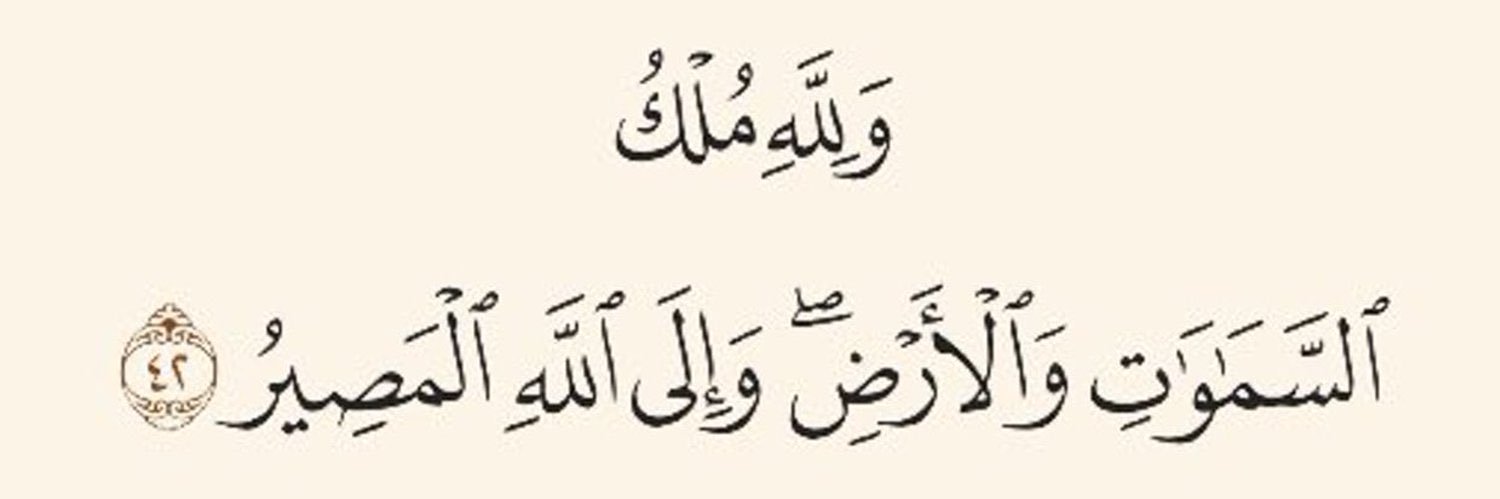 وَلِلَّهِ مُلْكُ
ٱلسَّمَـٰوَٰتِ وَٱلْأَرْضِ ۖ وَإِلَى ٱللَّهِ ٱلْمَصِيرُ ٤٢